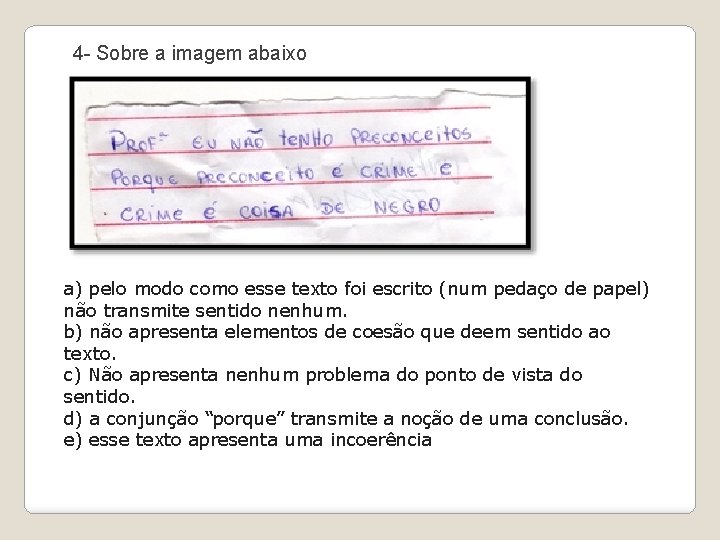 4- Sobre a imagem abaixo
PROFª EU NÃO TENHO PRECONCEITOS
PORQUE PRECONCEITO É CRIME E
CRIME É COISA DE NEGRO
a) pelo modo como esse texto foi escrito (num pedaço de papel)
não transmite sentido nenhum.
b) não apresenta elementos de coesão que deem sentido ao
texto.
c) Não apresenta nenhum problema do ponto de vista do
sentido.
d) a conjunção “porque” transmite a noção de uma conclusão.
e) esse texto apresenta uma incoerência